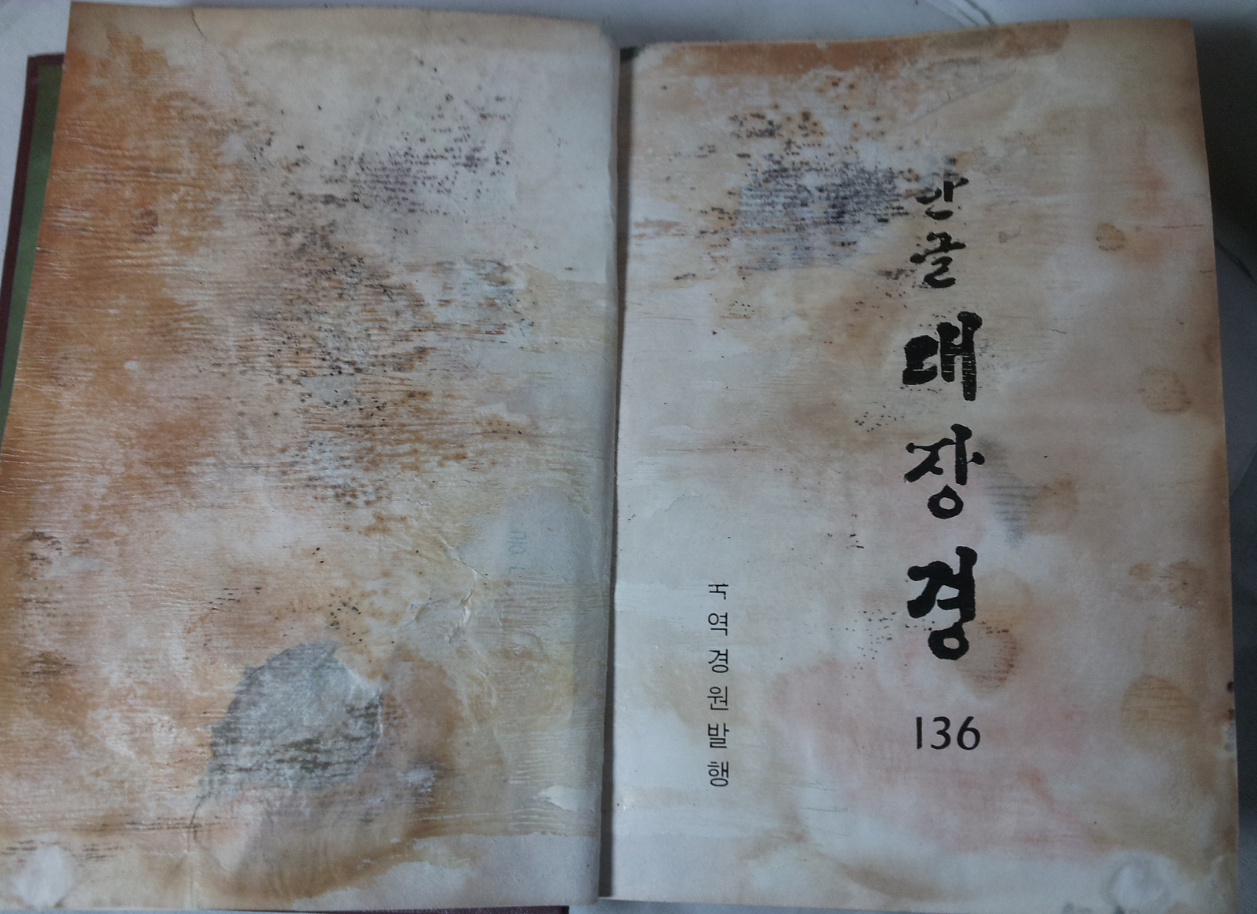 한글 대장경
136
국역경원발행